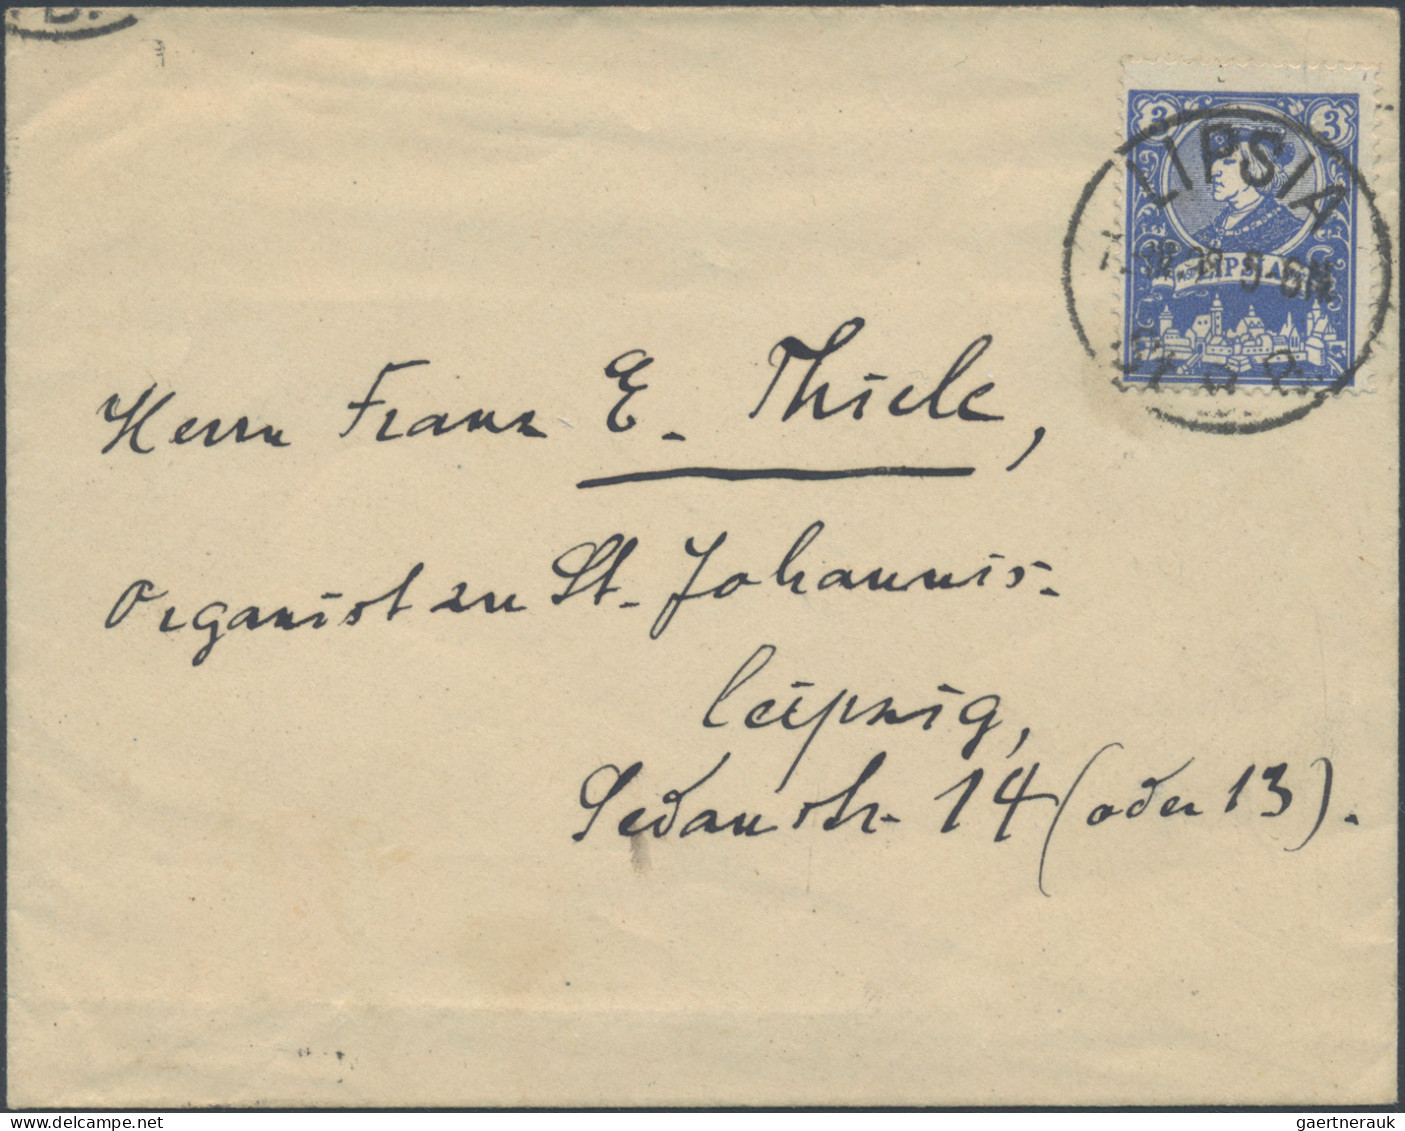 B.
3 3
LIPSIA
7.-12.93 5-6N.
LIPSIA
Herrn Franz E. Thiele,
Organist zu St. Johannis.
Leipzig,
Sedanstr. 14 (oder 13).
gaertnerauk.com